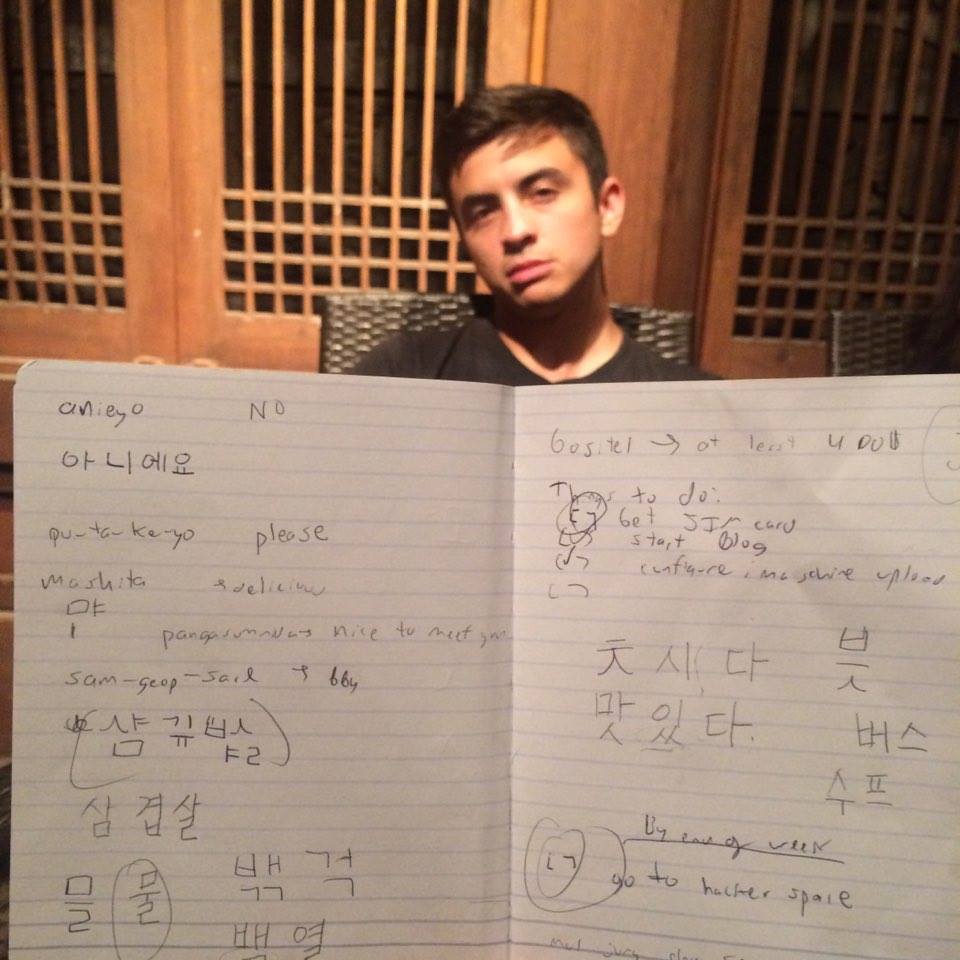 anieyo NO
아니에요
pu-ta-ke-yo please
mashita → delicious
먀
pangasumnida → nice to meet you
sam-geop-sarl → bbq
삼 겹 살
믈 물
백
Gositel → at least 4 DOU
Things to do:
[ ] Get SIM card
start Blog
[✓] configure
[ ]
시 다 븟
맛 있 다. 버스
수 프
By end of week
[ ] go to hacker space